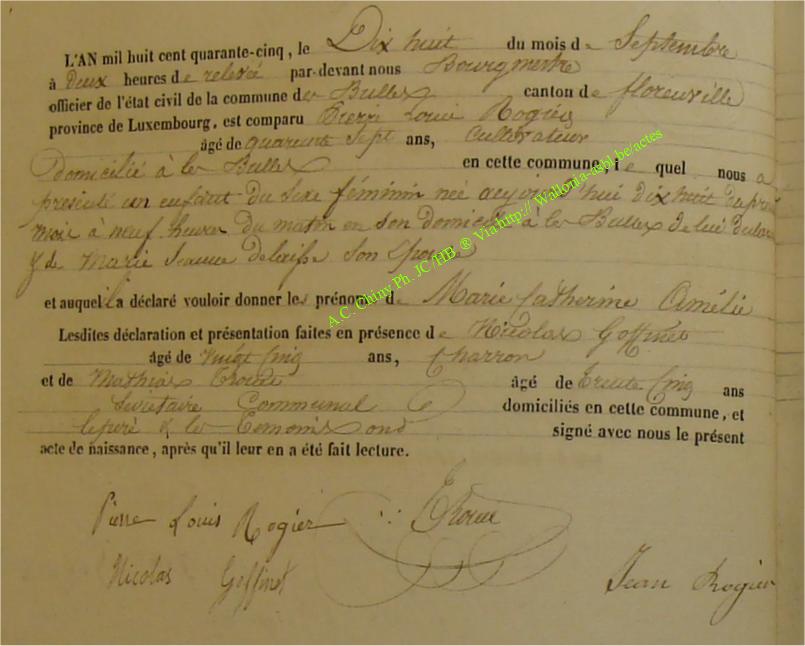 L'AN mil huit cent quarante-cinq, le Dix huit du mois de Septembre
à Deux heures de relevée par-devant nous Bourgmestre
officier de l'état civil de la commune des Bulles canton de florenville
province de Luxembourg, est comparu Pierre Louis Rogier
âgé de quarante Sept ans, Cultivateur
Domicilié à les Bulles en cette commune, le quel nous a
présenté un enfant du Sexe féminin née aujourd'hui dix huit du
mois à neuf heures du matin en son domicile à les Bulles de lui
& de Marie Jeanne son Epouse
et auquel il a déclaré vouloir donner les prénoms de Marie Catherine Amélie
Lesdites déclaration et présentation faites en présence de Nicolas Goffinet
âgé de Vingt Cinq ans, Charron
et de Mathias âgé de Trente Cinq ans
Secretaire Communal domiciliés en cette commune, et
le pere & les Temoins ond signé avec nous le présent
acte de naissance, après qu'il leur en a été fait lecture.
Pierre Louis Rogier
Nicolas Goffinet Jean Rogier
A.C. Chiny Ph. JC/HB ® Via http://Wallonia-asbl.be/actes